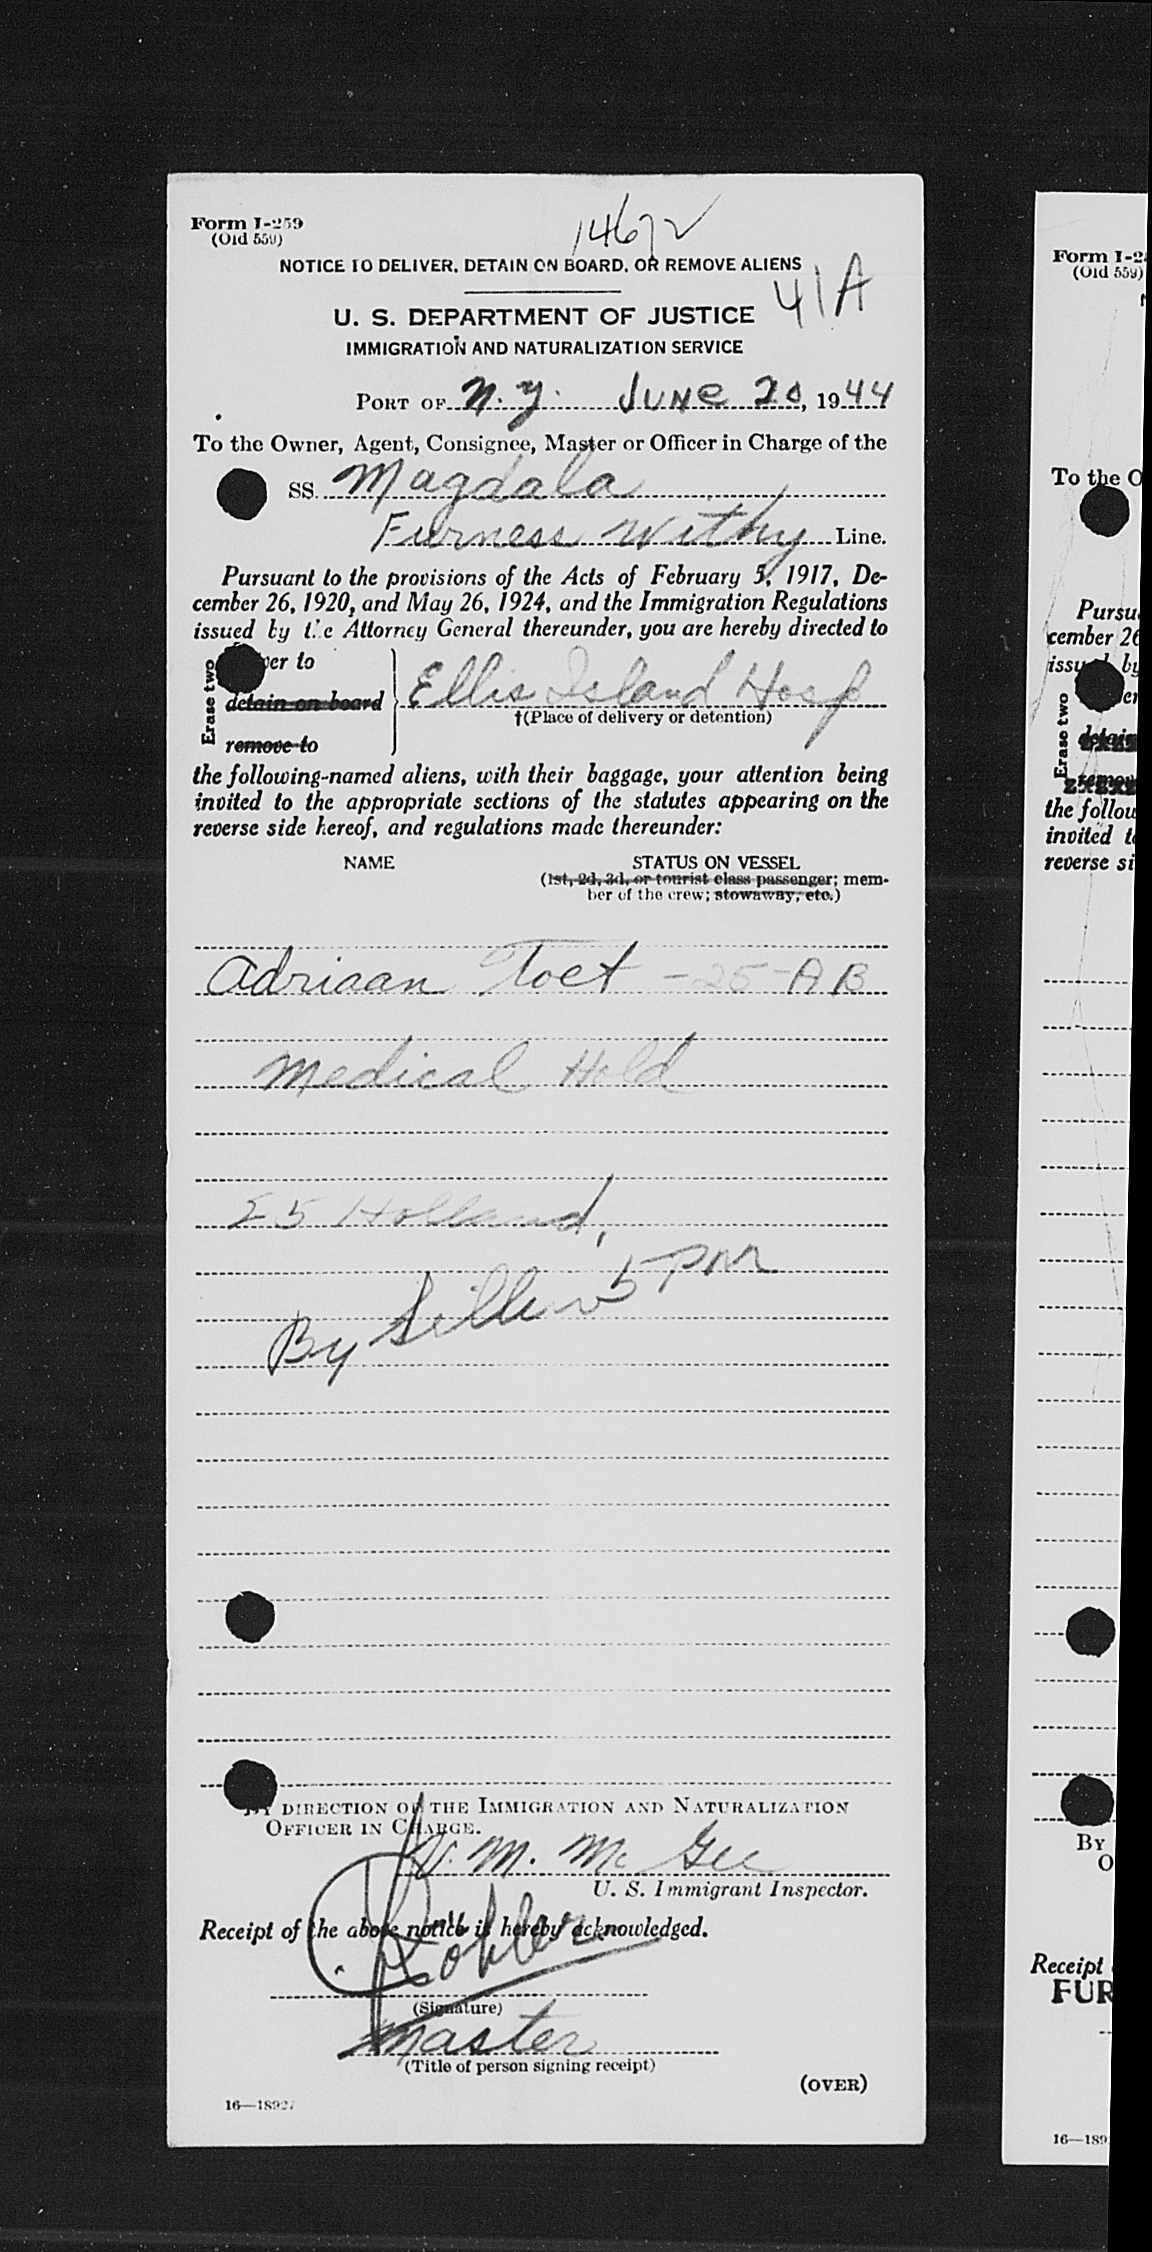 Form I-259
(Old 559)
14672
NOTICE TO DELIVER, DETAIN ON BOARD, OR REMOVE ALIENS
41A
U. S. DEPARTMENT OF JUSTICE
IMMIGRATION AND NATURALIZATION SERVICE
PORT OF N.Y. JUNE 20, 1944
To the Owner, Agent, Consignee, Master or Officer in Charge of the
SS. Magdala
Furness Withy Line.
Pursuant to the provisions of the Acts of February 5, 1917, De-
cember 26, 1920, and May 26, 1924, and the Immigration Regulations
issued by the Attorney General thereunder, you are hereby directed to
Erase two
ver to
detain on board
remove to
Ellis Island Hosp
†(Place of delivery or detention)
the following-named aliens, with their baggage, your attention being
invited to the appropriate sections of the statutes appearing on the
reverse side hereof, and regulations made thereunder:
NAME STATUS ON VESSEL
(1st, 2d, 3d, or tourist class passenger; mem-
ber of the crew; stowaway, etc.)
Adriaan Toet - 25 - AB
Medical Hold
25 Holland,
By 5 PM
BY DIRECTION OF THE IMMIGRATION AND NATURALIZATION
OFFICER IN CHARGE.
V. M. McGee
U. S. Immigrant Inspector.
Receipt of the above notice is hereby acknowledged.
(Signature)
Master
(Title of person signing receipt)
(OVER)
16—18927
Form I-2
(Old 559)
To the O
Pursu
cember 26
issu by
Erase two
er
detain
remov
the follow
invited t
reverse si
By
O
Receipt
FUR
16—189